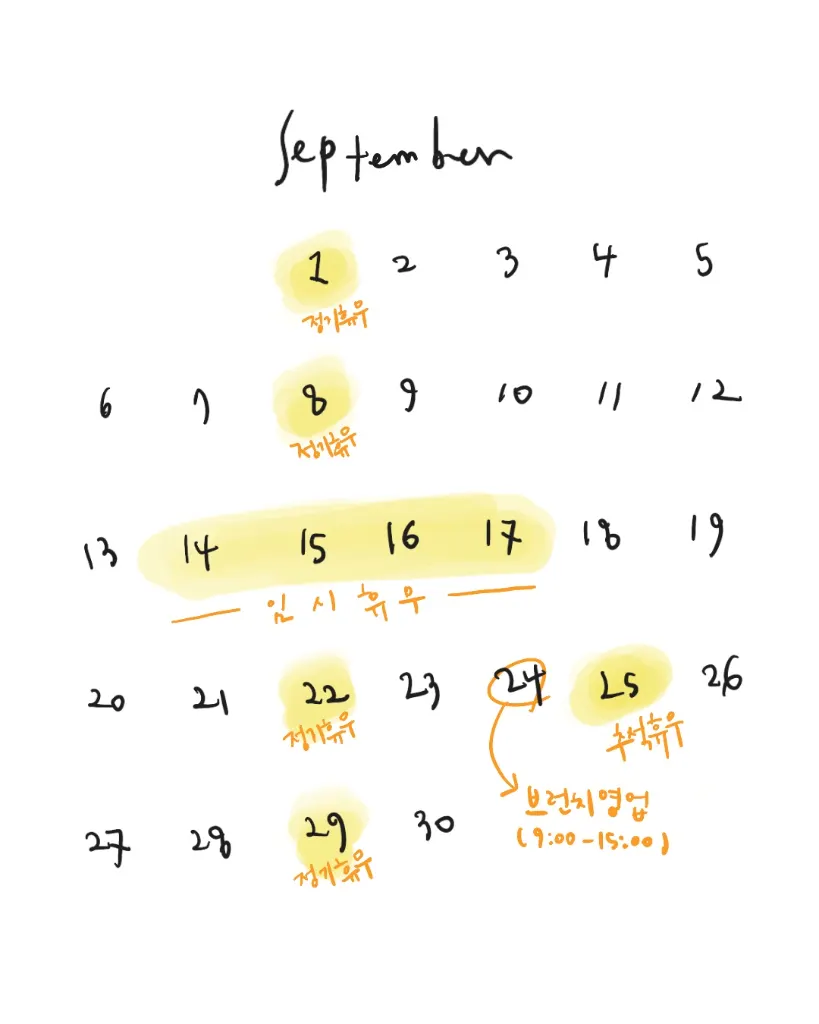 September
1 2 3 4 5
정기휴무
6 7 8 9 10 11 12
정기휴무
13 14 15 16 17 18 19
임시휴무
20 21 22 23 24 25 26
정기휴무 추석휴무
브런치영업
(9:00-15:00)
27 28 29 30
정기휴무